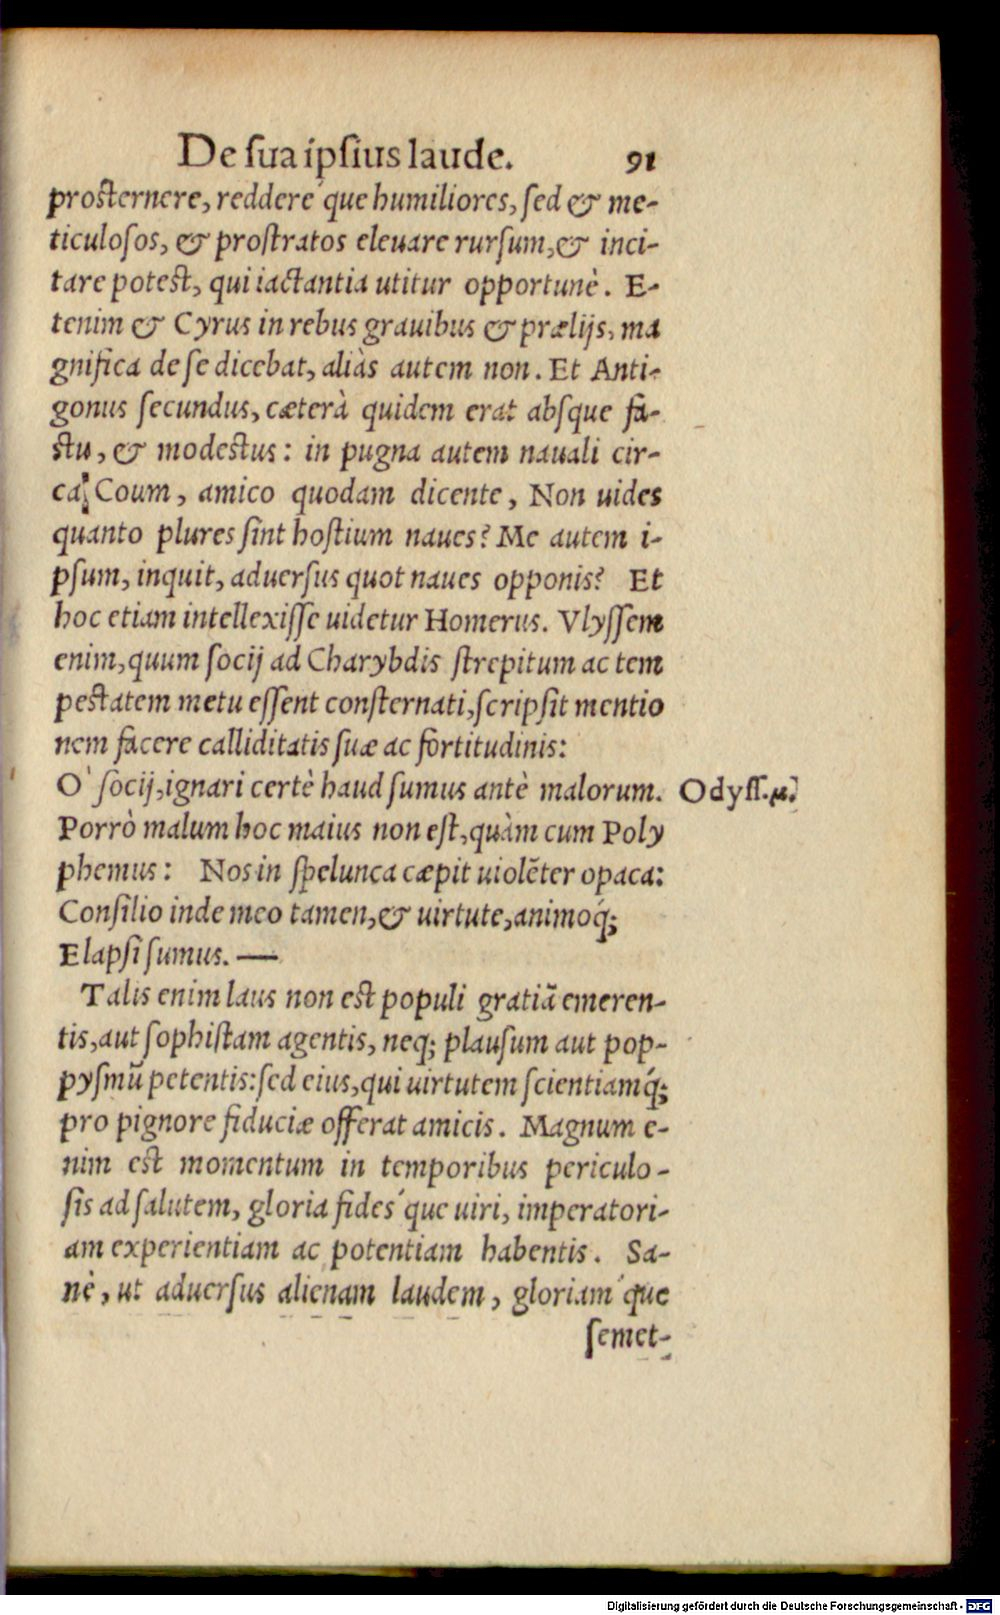 De ſua ipſius laude. 91
proſternere, reddere´que humiliores, ſed & me-
ticuloſos, & proſtratos eleuare rurſum, & inci-
tare poteſt, qui iactantia utitur opportunè. E-
tenim & Cyrus in rebus grauibus & prælijs, ma
gnifica de ſe dicebat, aliàs autem non. Et Anti-
gonus ſecundus, cæterà quidem erat abſque fa-
ſtu, & modeſtus: in pugna autem nauali cir-
ca Coum, amico quodam dicente, Non uides
quanto plures ſint hoſtium naues? Me autem i-
pſum, inquit, aduerſus quot naues opponis? Et
hoc etiam intellexiſſe uidetur Homerus. Vlyſſem
enim, quum ſocij ad Charybdis ſtrepitum ac tem
peſtatem metu eſſent conſternati, ſcripſit mentio
nem facere calliditatis ſuæ ac fortitudinis:
O` ſocij, ignari certè haud ſumus antè malorum. Odyſſ. μ.
Porrò malum hoc maius non eſt, quàm cum Poly
phemus: Nos in ſpelunca cæpit uiolẽter opaca:
Conſilio inde meo tamen, & uirtute, animoq́;
Elapſi ſumus. —
Talis enim laus non eſt populi gratiã emeren-
tis, aut ſophiſtam agentis, neq; plauſum aut pop-
pyſmũ petentis: ſed eius, qui uirtutem ſcientiamq́;
pro pignore fiduciæ offerat amicis. Magnum e-
nim eſt momentum in temporibus periculo-
ſis ad ſalutem, gloria fides´que uiri, imperatori-
am experientiam ac potentiam habentis. Sa-
nè, ut aduerſus alienam laudem, gloriam´que
ſemet-
Digitalisierung gefördert durch die Deutsche Forschungsgemeinschaft - DFG